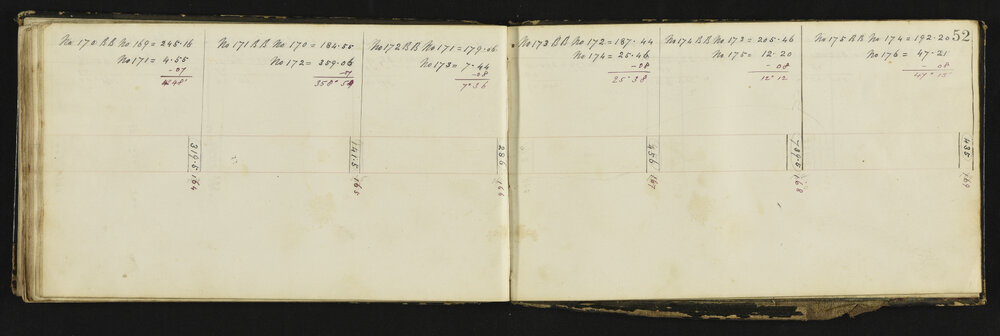 No 170 B.B. No 169 = 245.16
No 171 = 4.55
- 07
4° 48'
319.5 164
No 171 B.B. No 170 = 184.55
No 172 = 359.06
- 07
358° 59
141.5 165
No 172 B.B. No 171 = 179.06
No 173 = 7.44
- 08
7° 36
286 166
No 173 B.B. No 172 = 187.44
No 174 = 25.46
- 08
25° 38
456 167
No 174 B.B. No 173 = 205.46
No 175 = 12.20
- 08
12° 12
789.5 168
No 175 B.B. No 174 = 192.20
No 176 = 47.21
- 08
47° 13'
435 169
52